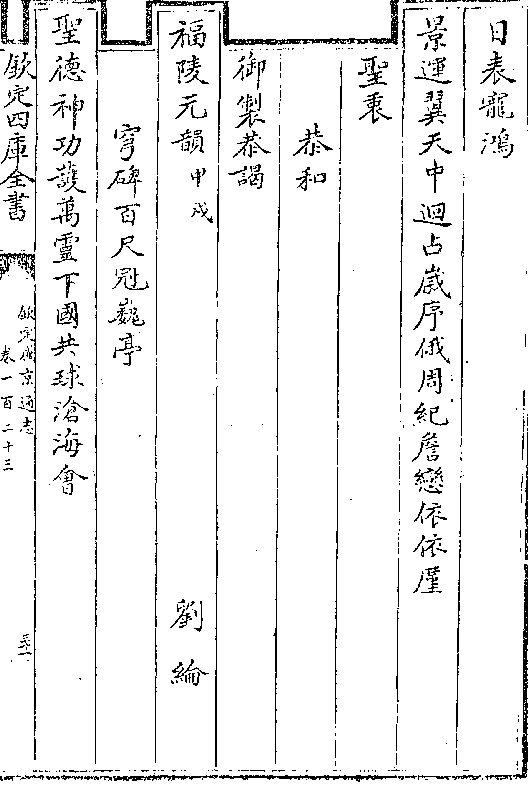 日表寵鴻
景運翼天中迴占嵗序俄周紀詹戀依依廑
聖衷
恭和
御製恭謁
福陵元韻甲戌 劉綸
穹碑百尺冠巍亭
聖德神功䕶萬靈下國共球滄海會
欽定四庫全書
欽定盛京通志
卷一百二十三